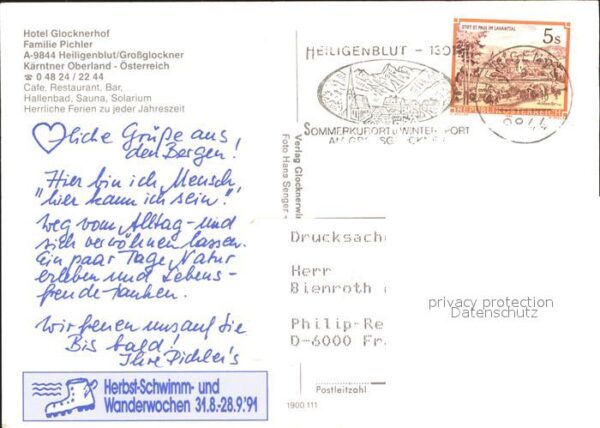 Hotel Glocknerhof
Familie Pichler
A-9844 Heiligenblut/Großglockner
Kärntner Oberland - Österreich
☎ 0 48 24 / 22 44
Cafe, Restaurant, Bar,
Hallenbad, Sauna, Solarium
Herrliche Ferien zu jeder Jahreszeit
♡liche Grüße aus
den Bergen!
Hier bin ich Mensch,
"hier kann ich sein"!
Weg vom Alltag - und
sich verwöhnen lassen.
Ein paar Tage, Natur
erleben und Lebens-
freude tanken.
Wir freuen uns auf Sie
Bis bald!
Ihre Pichler's
Herbst-Schwimm- und
Wanderwochen 31.8.-28.9.'91
HEILIGENBLUT - 1301
SOMMERKURORT u WINTER PORT
STIFT ST. PAUL IM LAVANTTAL
5s
REPUBLIK ÖSTERREICH
9844
Verlag Glocknerwi
Foto Hans Senger
Drucksach
Herr
Bienroth
Philip-Re
D-6000 Fr
privacy protection
Datenschutz
Postleitzahl
1900 111